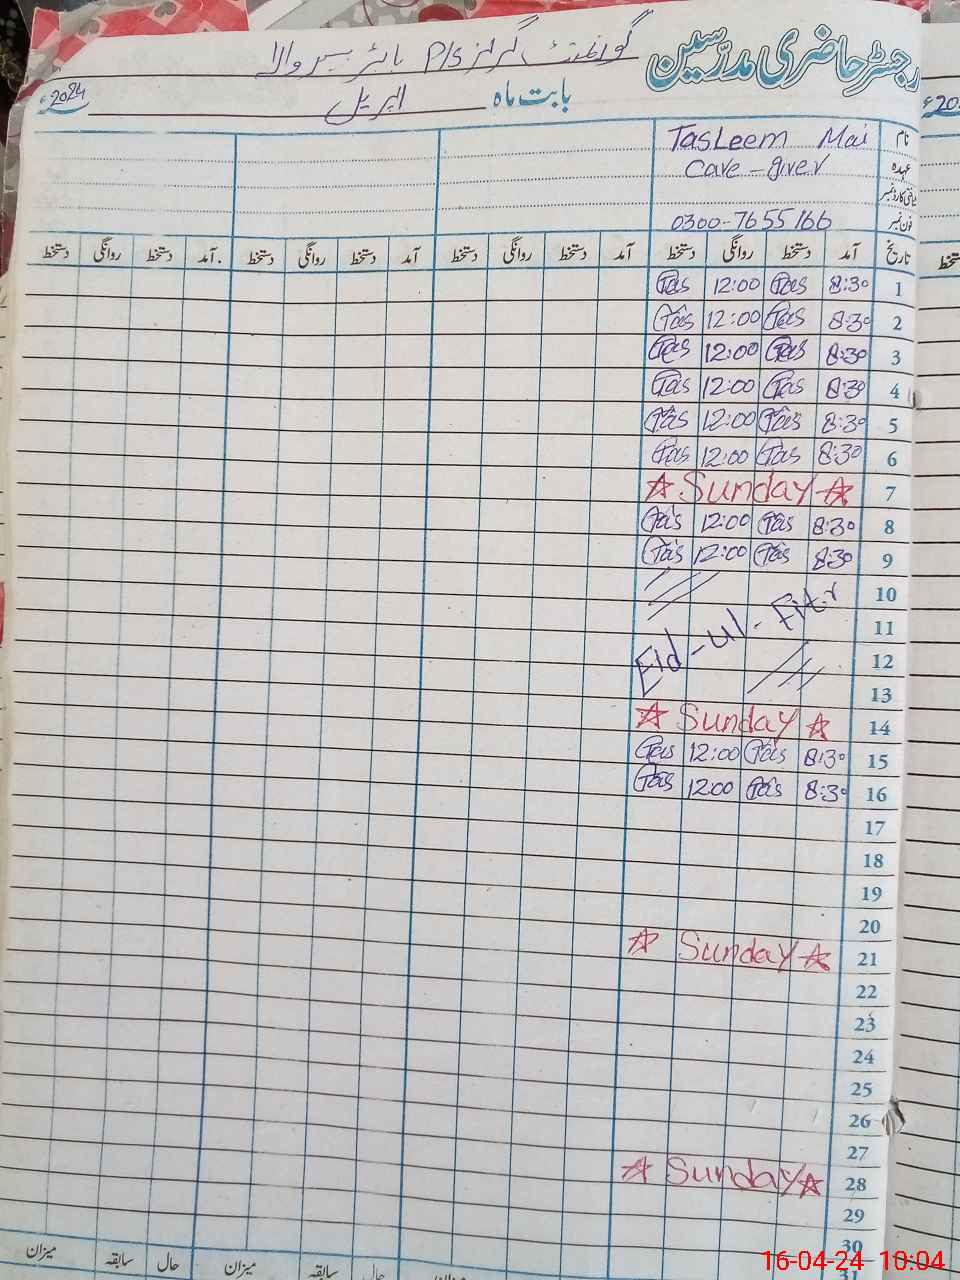 رجسٹر حاضری مدرّسین گورنمنٹ گرلز P/S
بابت ماہ اپریل 2024ء
نام Tasleem Mai
عہدہ Care-giver
شناختی کارڈ نمبر
فون نمبر 0300-7655166
تاریخ آمد دستخط روانگی دستخط آمد دستخط روانگی دستخط آمد دستخط روانگی دستخط آمد دستخط روانگی دستخط
1 8:30 Tas 12:00 Tas
2 8:30 Tas 12:00 Tas
3 8:30 Tas 12:00 Tas
4 8:30 Tas 12:00 Tas
5 8:30 Tas 12:00 Tas
6 8:30 Tas 12:00 Tas
7 Sunday
8 8:30 Tas 12:00 Tas
9 8:30 Tas 12:00 Tas
10
11 Eid-ul-Fitr
12
13
14 Sunday
15 8:30 Tas 12:00 Tas
16 8:30 Tas 12:00 Tas
17
18
19
20
21 Sunday
22
23
24
25
26
27
28 Sunday
29
30
31
حال سابقہ میزان حال سابقہ میزان
16-04-24 10:04